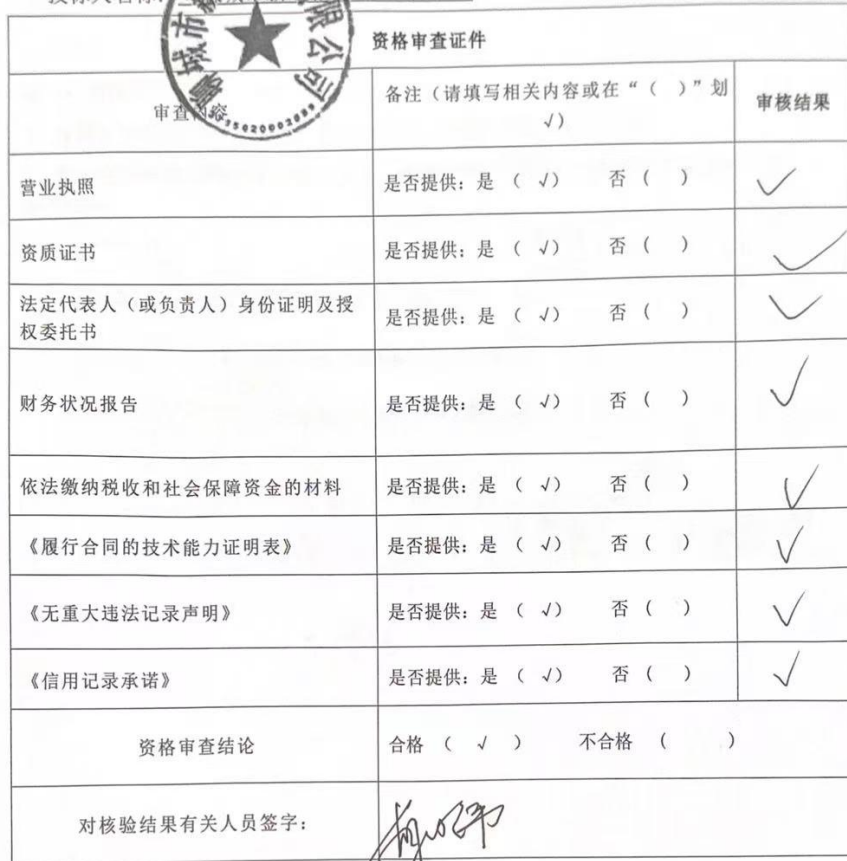 资格审查证件
审查内容
备注（请填写相关内容或在“（ ）”划
√）
审核结果
营业执照
是否提供：是 （ √） 否 （ ）
资质证书
是否提供：是 （ √） 否 （ ）
法定代表人（或负责人）身份证明及授
权委托书
是否提供：是 （ √） 否 （ ）
财务状况报告
是否提供：是 （ √） 否 （ ）
依法缴纳税收和社会保障资金的材料
是否提供：是 （ √） 否 （ ）
《履行合同的技术能力证明表》
是否提供：是 （ √） 否 （ ）
《无重大违法记录声明》
是否提供：是 （ √） 否 （ ）
《信用记录承诺》
是否提供：是 （ √） 否 （ ）
资格审查结论
合格 （ √ ） 不合格 （ ）
对核验结果有关人员签字：